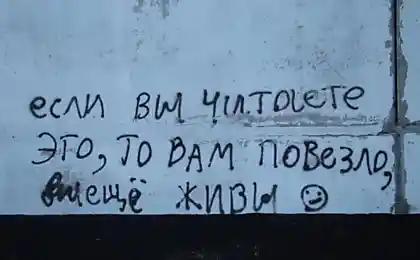 если вы читаете
это, то вам повезло,
вы ещё живы